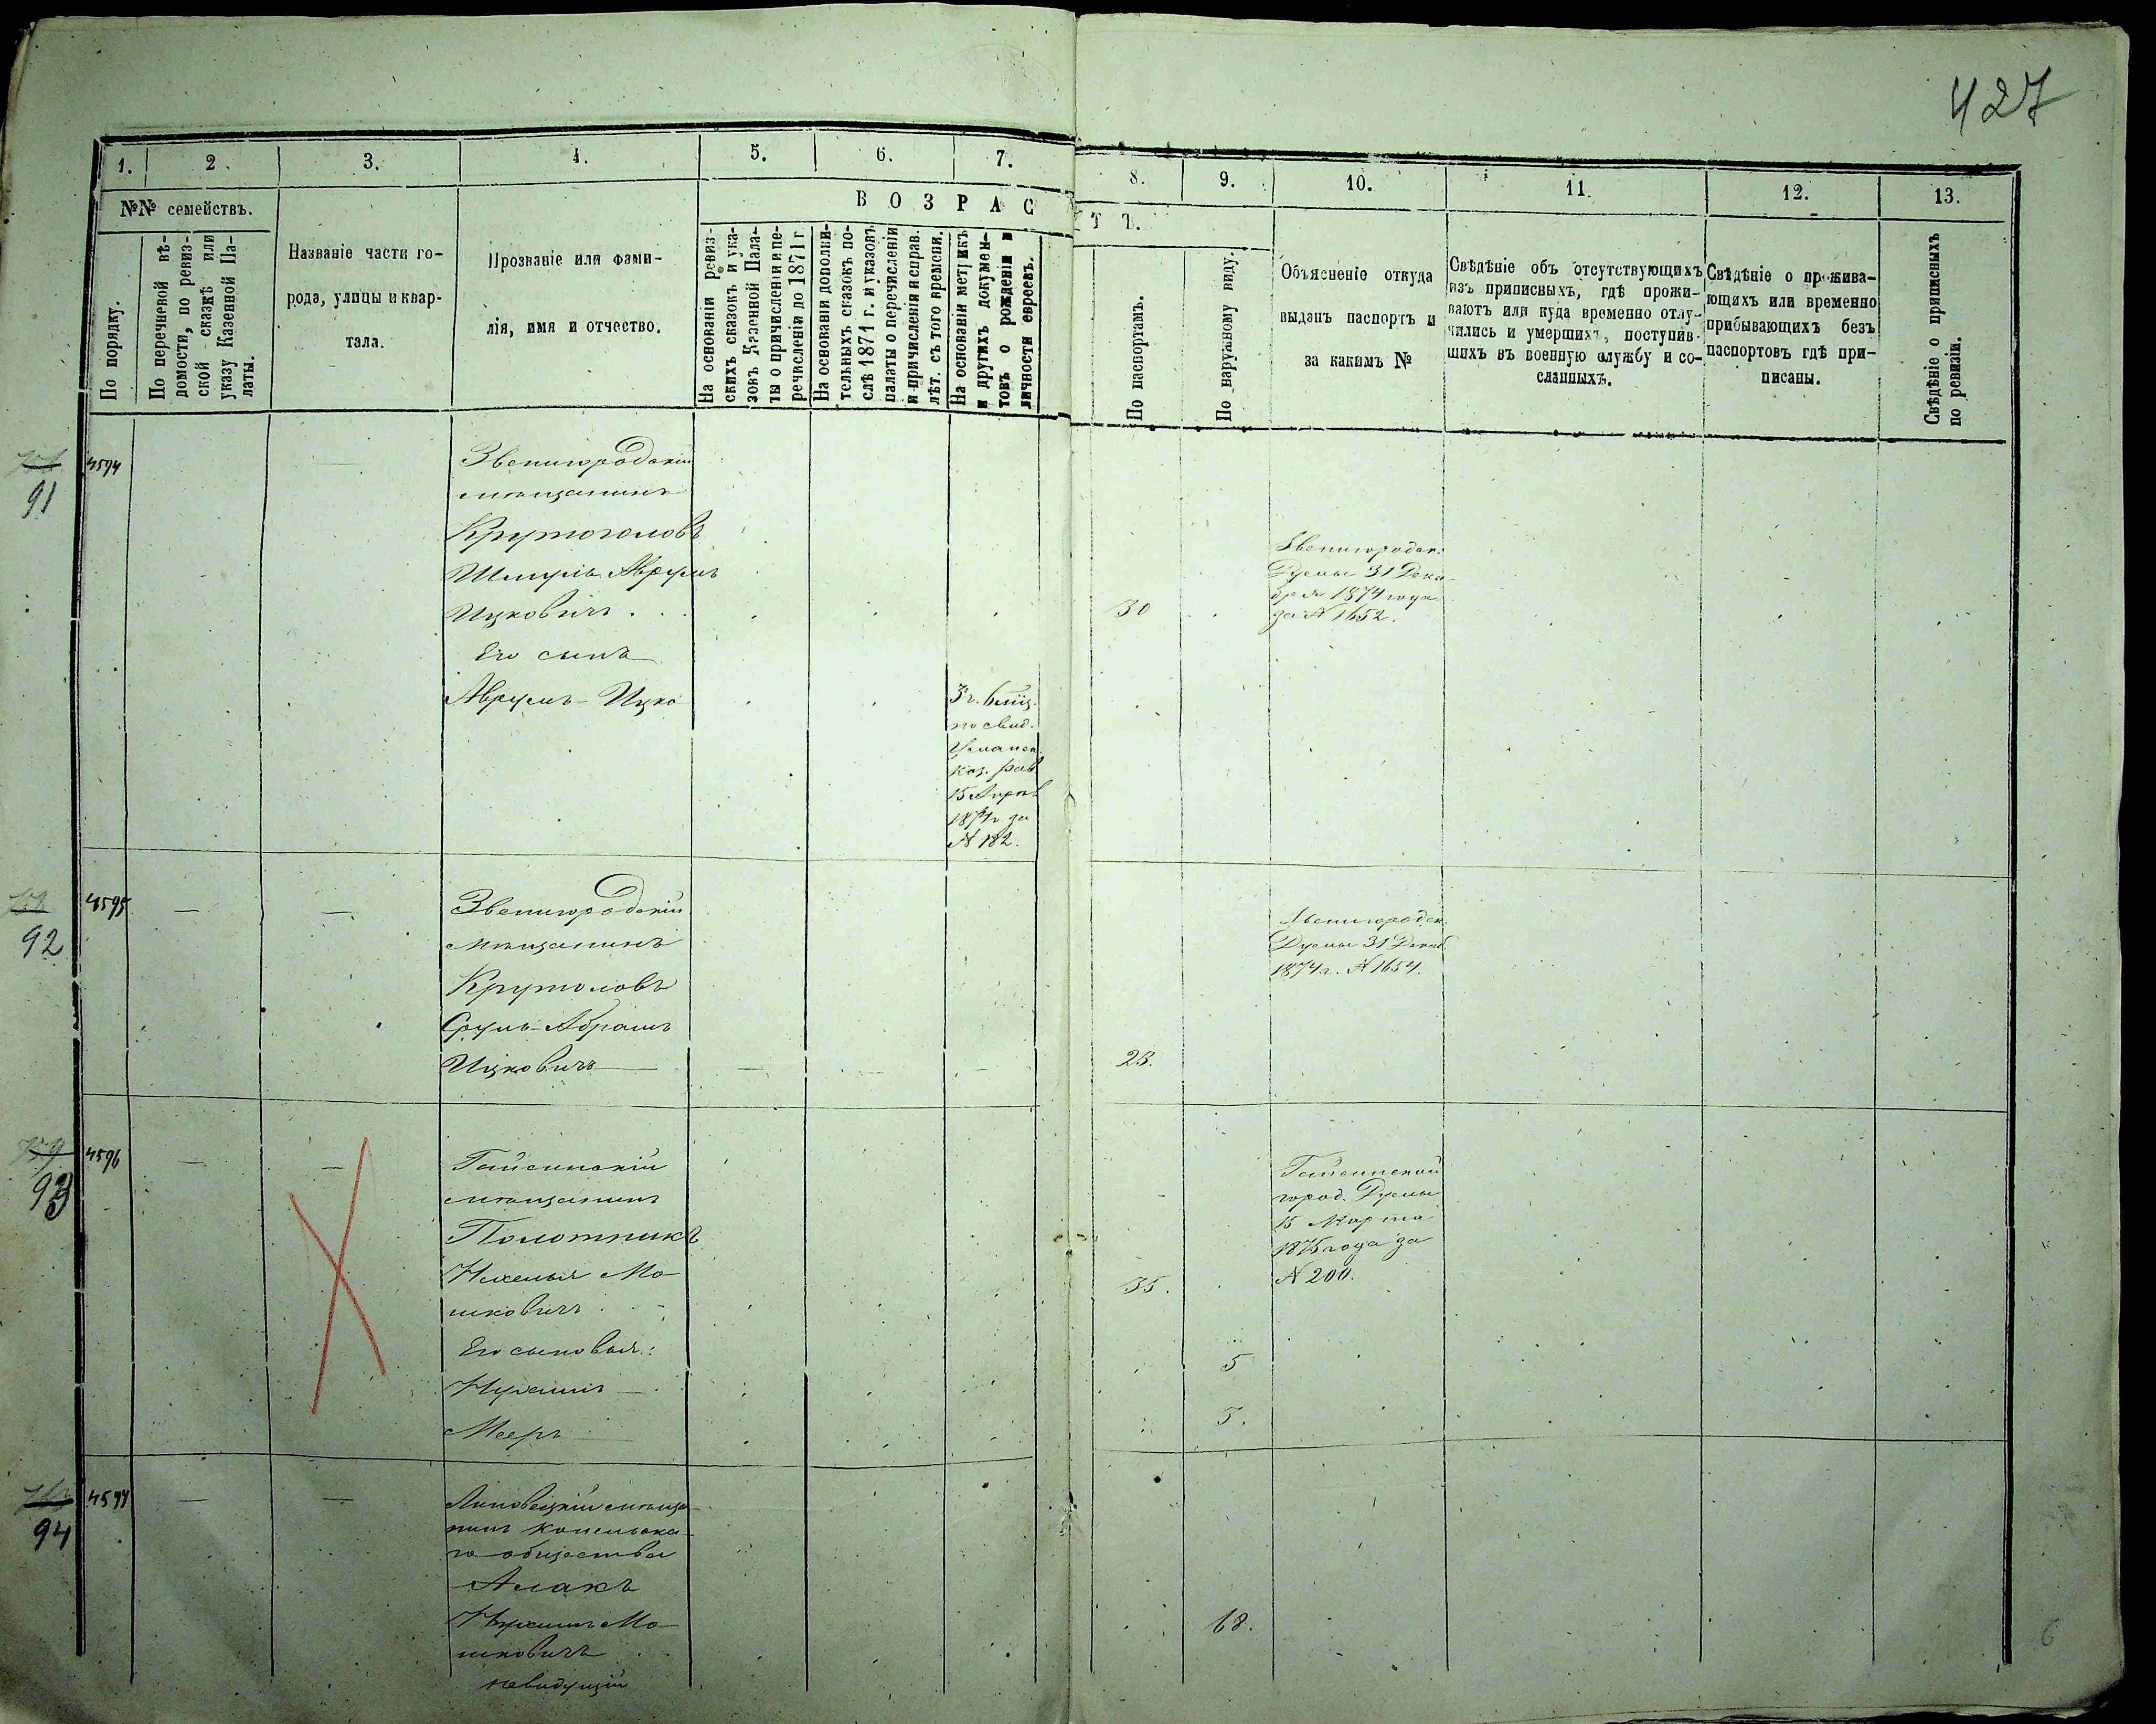 427
1. 2. 3. 4. 5. 6. 7. 8. 9. 10. 11 12. 13.
№№ семействъ.
По порядку.
По перечневой вѣ-
домости, по ревиз-
ской сказкѣ или
указу Казенной Па-
латы.
Названіе части го-
рода, улицы и квар-
тала.
Прозваніе или фами-
лія, имя и отчество.
ВОЗРАСТЪ.
На основаніи ревиз-
скихъ сказокъ и ука-
зокъ Казенной Пала-
ты о причисленіи и пе-
речисленіи до 1871 г
На основаніи дополни-
тельныхъ сказокъ по-
слѣ 1871 г. и указовъ
палаты о перечисленіи
и причисленія и справ.
лѣт. съ того времени.
На основаніи метрикъ
и другихъ докумен-
товъ о рожденіи и
личности евреевъ.
По паспортамъ.
По наружному виду.
Объясненіе откуда
выданъ паспортъ и
за какимъ №
Свѣдѣніе объ отсутствующихъ
изъ приписныхъ, гдѣ прожи-
ваютъ или куда временно отлу-
чились и умершихъ, поступив-
шихъ въ военную службу и со-
сланныхъ.
Свѣдѣніе о прожива-
ющихъ или временно
прибывающихъ безъ
паспортовъ гдѣ при-
писаны.
Свѣдѣніе о приписныхъ
по ревизіи.
91
4594
Звенигородскій
мѣщанинъ
Крутоголовъ
Шмуль Аврумъ
Ицковичъ
Его сынъ
Аврумъ-Ицко
3 г. 6 мѣс.
по свид.
Уманск.
каз. рав.
15 Апрѣл
187 г. за
№ 182.
30
Звенигородск.
Думы 31 Дека-
бря 1874 года
за № 1652.
92
4595
Звенигородскій
мѣщанинъ
Крутоловъ
Сруль-Абрамъ
Ицковичъ
23.
Звенигородск.
Думы 31 Декаб.
1874 г. № 1654.
93
4596
Гайсинскій
мѣщанинъ
Полотникъ
Нахемья Мо
шковичъ
Его сыновья:
Нухимъ
Мееръ
35.
5
3.
Гайсинской
город. Думы
15 Марта
1875 года за
№ 200.
94
4597
Липовецкій мѣща-
нинъ
го общества
Нухимъ Мо
шковичъ
невидущій
68.
6